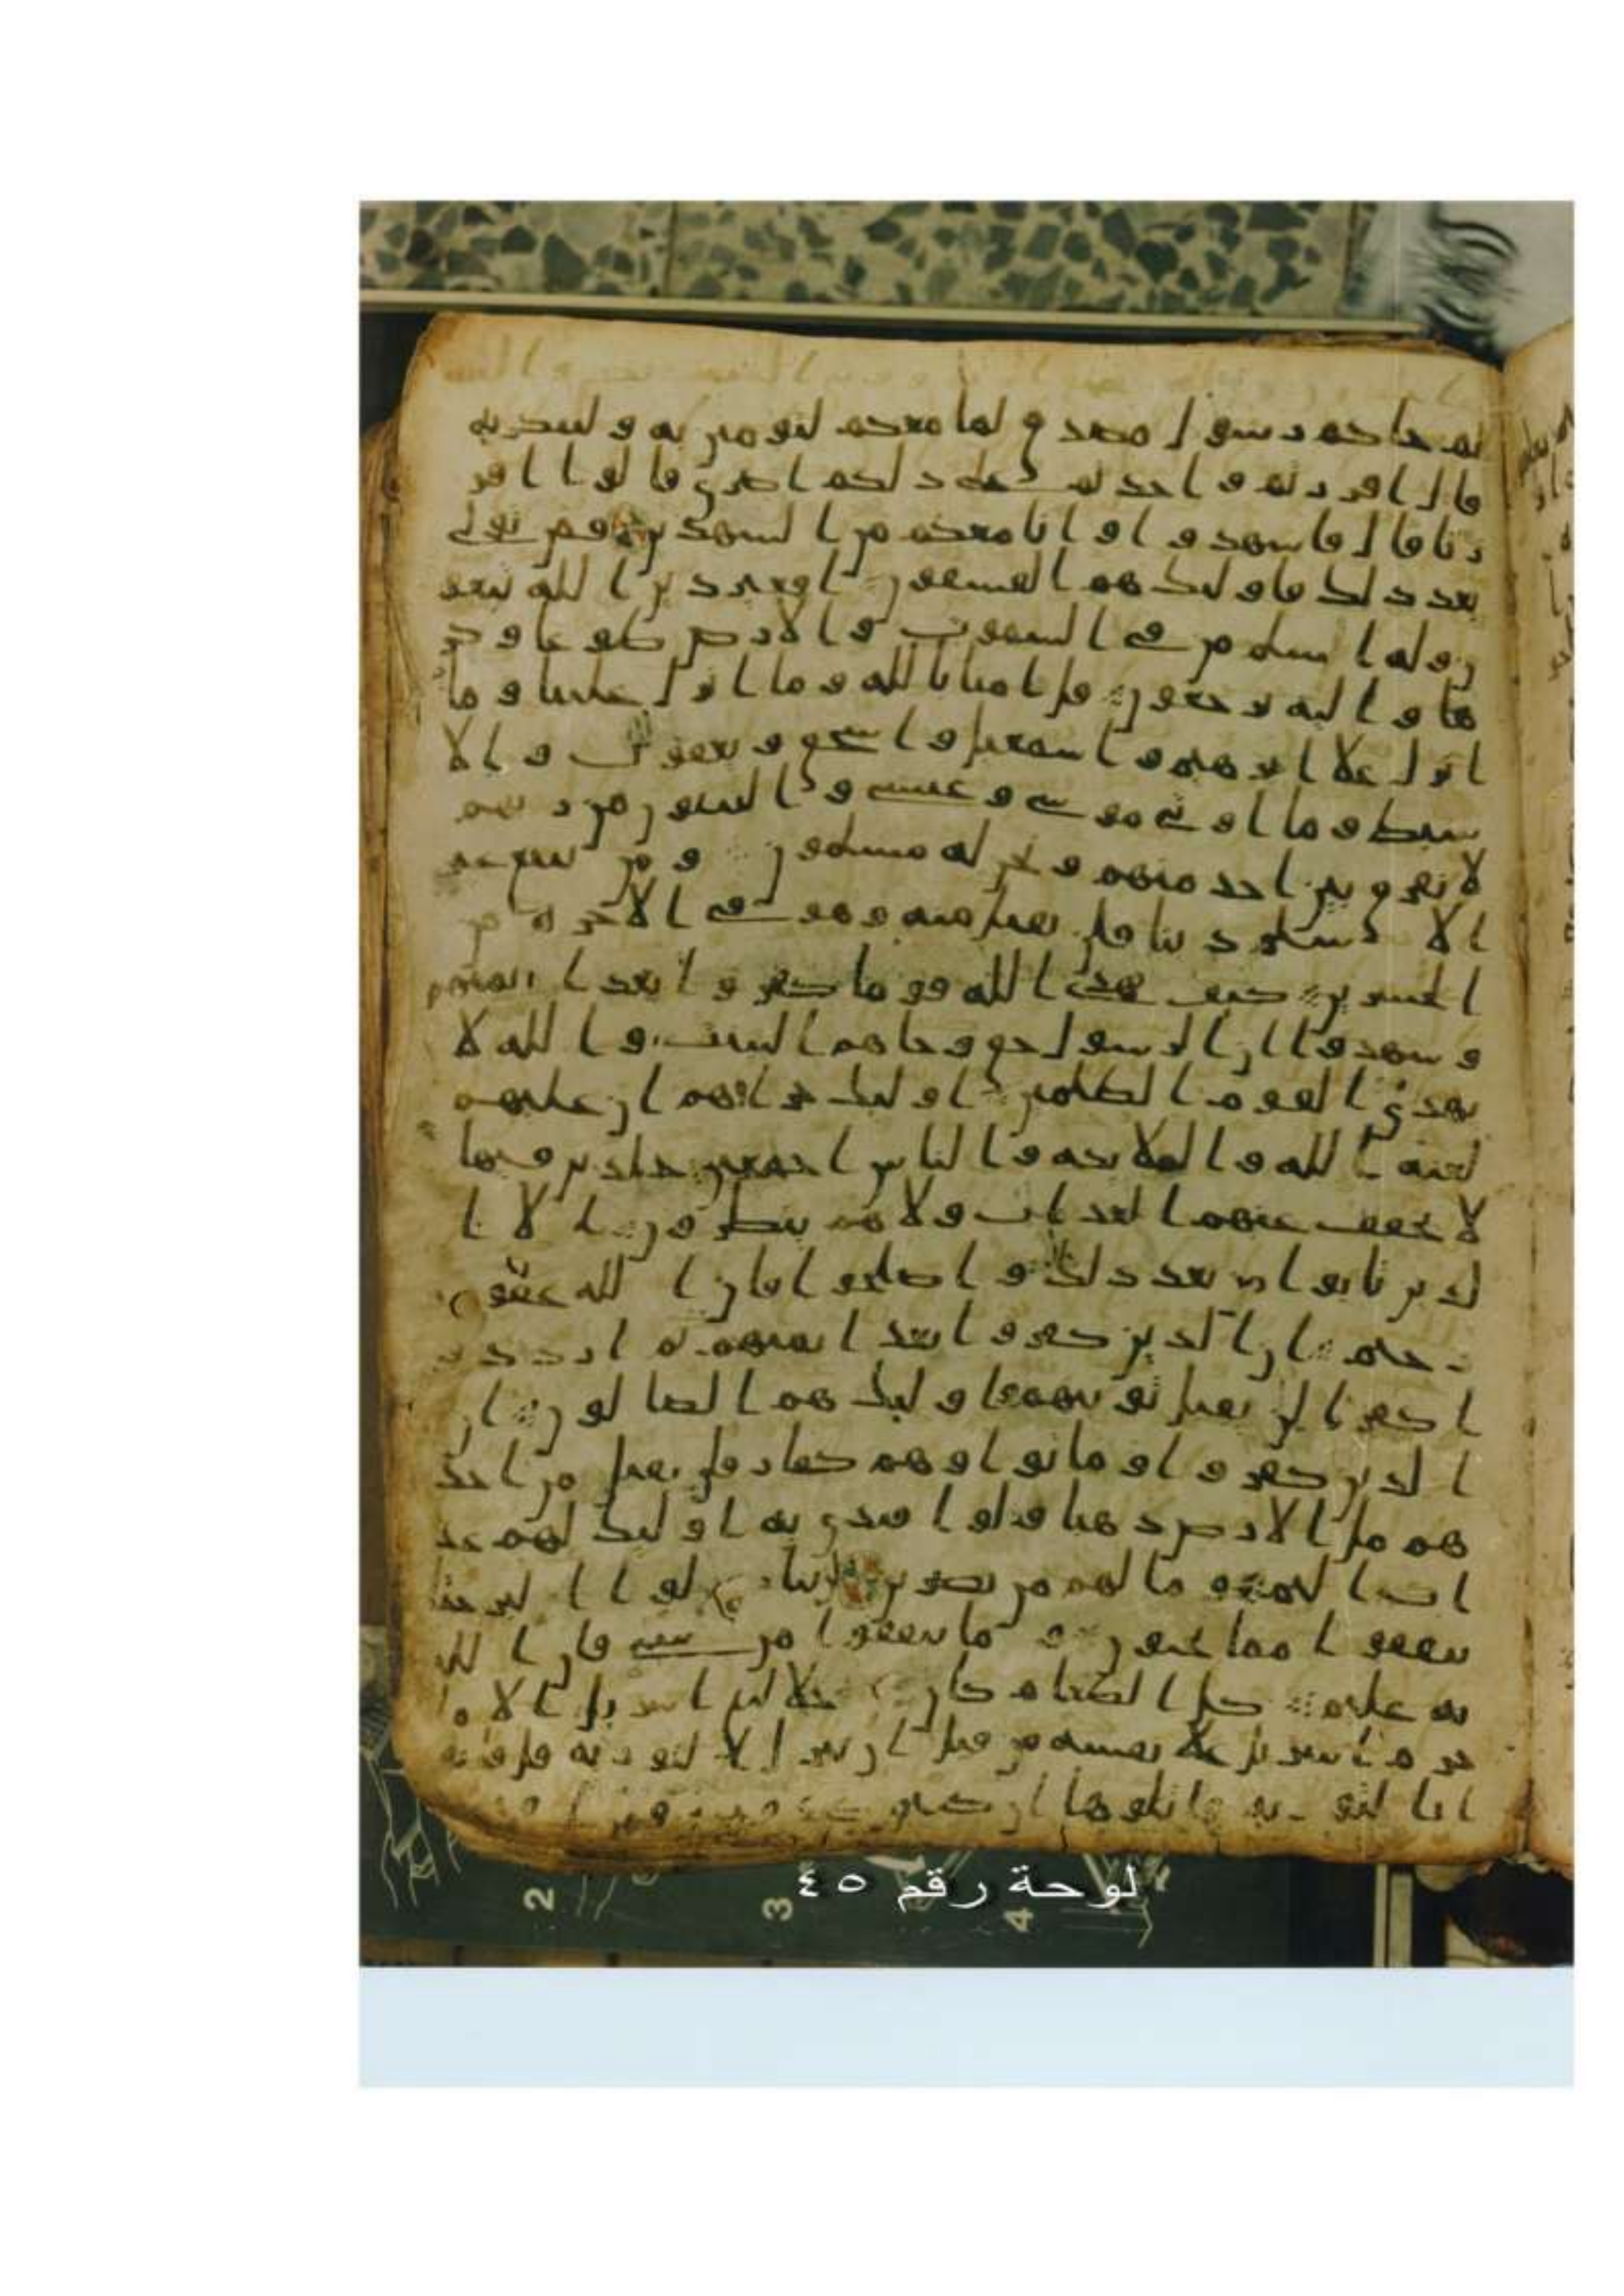 ثم جاكم رسول مصدق لما معكم لتومنن به ولتنصرنه
قال اقررتم واخذتم على ذلكم اصري قالوا اقر
رنا قال فاشهدوا وانا معكم من الشهدين فمن تولى
بعد ذلك فاوليك هم الفسقون افغير دين الله يبغو
ن وله اسلم من في السموت والارض طوعا وكر
ها واليه يرجعون قل امنا بالله وما انزل علينا وما
انزل على ابرهيم واسمعيل واسحق ويعقوب والا
سبط وما اوتي موسى وعيسى والنبيون من ربهم
لا نفرق بين احد منهم ونحن له مسلمون ومن يبتغ غير
الاسلم دينا فلن يقبل منه وهو في الاخرة من
الخسرين كيف يهدي الله قوما كفروا بعد ايمنهم
وشهدوا ان الرسول حق وجاهم البينت والله لا
يهدي القوم الظلمين اوليك جزاوهم ان عليهم
لعنة الله والملايكة والناس اجمعين خلدين فيها
لا يخفف عنهم العذاب ولا هم ينظرون الا ا
لذين تابوا من بعد ذلك واصلحوا فان الله غفور
رحيم ان الذين كفروا بعد ايمنهم ثم ازددو
ا كفرا لن تقبل توبتهم واوليك هم الضالون ان
الذين كفروا وماتوا وهم كفار فلن يقبل من احد
هم مل الارض ذهبا ولو افتدى به اوليك لهم عذ
اب اليم وما لهم من نصرين لن تنالوا البر حتى
تنفقوا مما تحبون وما تنفقوا من شي فان الله
به عليم كل الطعام كان حلا لبني اسريل الا ما
حرم اسريل على نفسه من قبل ان تنزل التوريه قل فاتو
ا بالتوريه فاتلوها ان كنتم صدقين فمن
لوحة رقم ٤٥
2 3 4